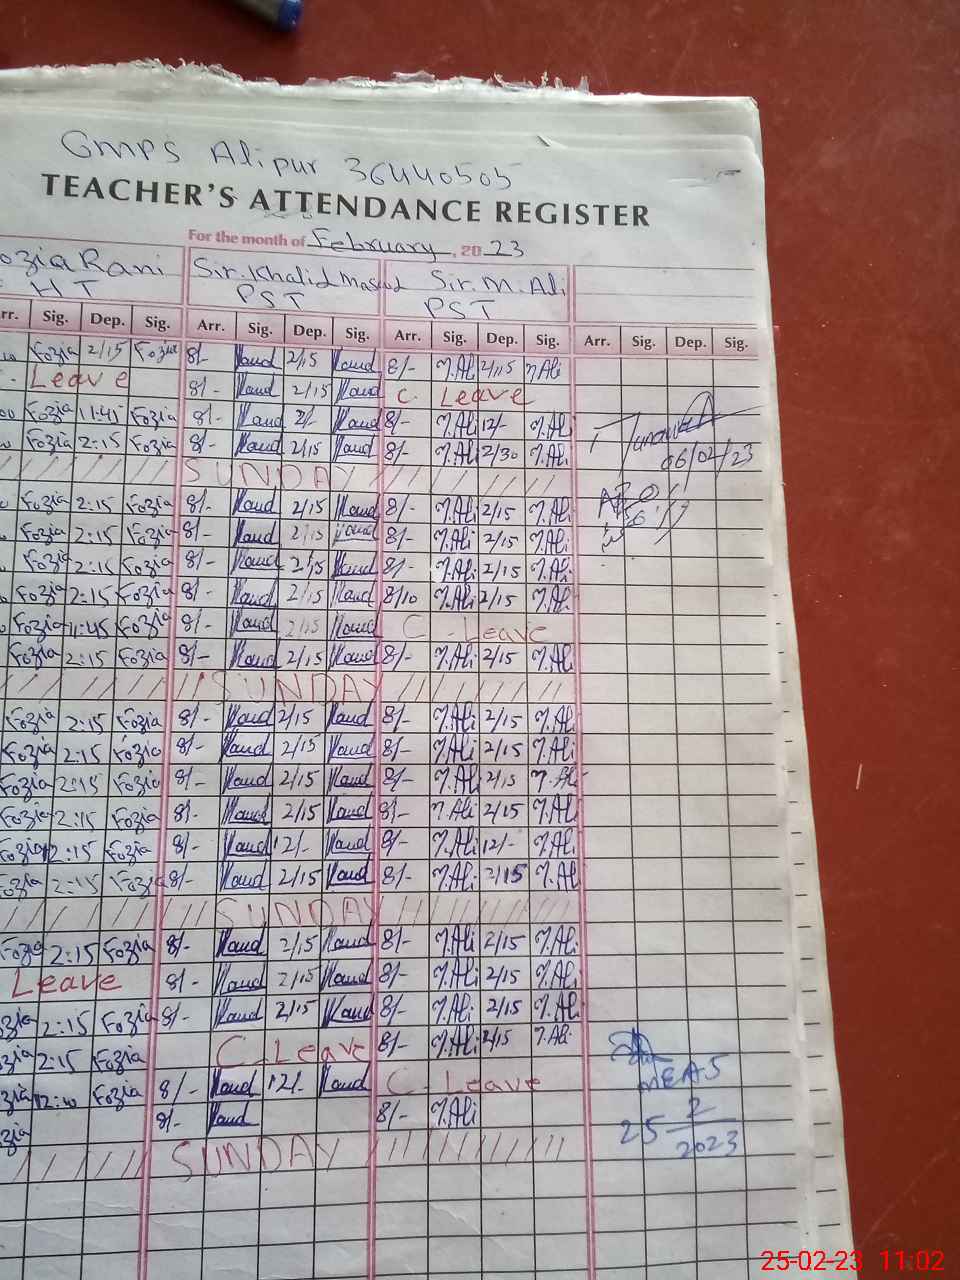 GMPS Alipur 36440505
TEACHER'S ATTENDANCE REGISTER
For the month of February, 2023
ozia Rani Sir. Khalid Masud Sir. M. Ali
HT PST PST
rr. Sig. Dep. Sig. Arr. Sig. Dep. Sig. Arr. Sig. Dep. Sig. Arr. Sig. Dep. Sig.
Fozia 2/15 Fozia 8/- 2/15 8/- M.Ali 2/15 M.Ali
Leave 8/- 2/15 C. Leave
Fozia 11:45 Fozia 8/- 8/- M.Ali 12/- M.Ali
Fozia 2:15 Fozia 8/- 2/15 8/- M.Ali 2/30 M.Ali
06/02/23
SUNDAY
Fozia 2:15 Fozia 8/- 2/15 8/- M.Ali 2/15 M.Ali
Fozia 2:15 Fozia 8/- 2/15 8/- M.Ali 2/15 M.Ali
Fozia 2:15 Fozia 8/- 2/15 8/- M.Ali 2/15 M.Ali
Fozia 2:15 Fozia 8/- 2/15 8/10 M.Ali 2/15 M.Ali
Fozia 11:45 Fozia 8/- 2/15 C-Leave
Fozia 2:15 Fozia 8/- 2/15 8/- M.Ali 2/15 M.Ali
SUNDAY
Fozia 2:15 Fozia 8/- 2/15 8/- M.Ali 2/15 M.Ali
Fozia 2:15 Fozia 8/- 2/15 8/- M.Ali 2/15 M.Ali
Fozia 2:15 Fozia 8/- 2/15 8/- M.Ali 2/15 M.Ali
Fozia 2:15 Fozia 8/- 2/15 8/- M.Ali 2/15 M.Ali
Fozia 12:15 Fozia 8/- 12/- 8/- M.Ali 12/- M.Ali
Fozia 2:15 Fozia 8/- 2/15 8/- M.Ali 2/15 M.Ali
SUNDAY
Fozia 2:15 Fozia 8/- 2/15 8/- M.Ali 2/15 M.Ali
Leave 8/- 2/15 8/- M.Ali 2/15 M.Ali
ozia 2:15 Fozia 8/- 2/15 8/- M.Ali 2/15 M.Ali
ozia 2:15 Fozia C-Leave 8/- M.Ali 2/15 M.Ali
ozia 12:10 Fozia 8/- 12/- C-Leave
MEAS
ozia 8/- 8/- M.Ali
25 2/2023
SUNDAY
25-02-23 11:02